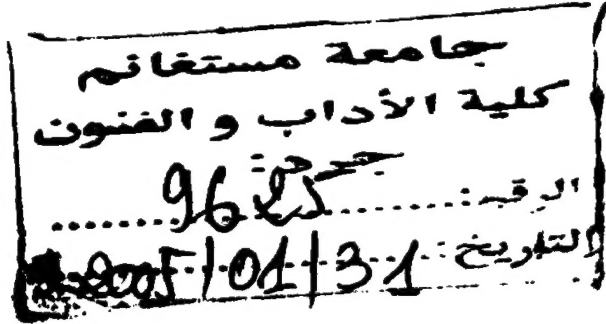 جامعة مستغانم
كلية الأداب و الفنون
جرد:
الرقم:........
التاريخ: 2005/01/31